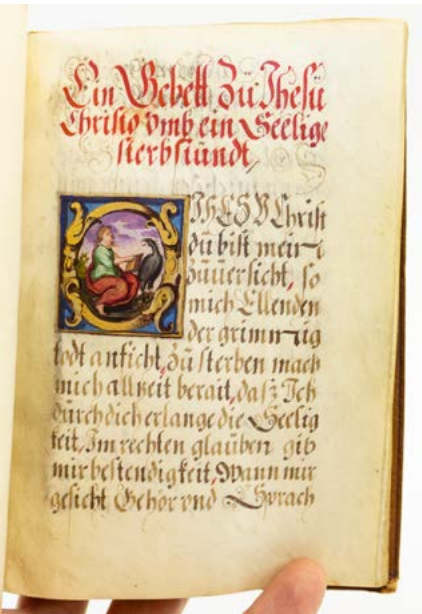 Ein Gebett Zů Jhesü
Christo vmb ein Seelige
sterbstündt,
JHESV Christ
dü bist mein
züüersicht, so
mich Ellenden
der grimmig
todt anficht, Zü sterben mach
mich allzeit berait, daß Ich
dürch dich erlange die Seelig
keit, Im rechten glaüben gib
mir bestendigkeit, Wann mir
gesicht Gehör vnd Sprach